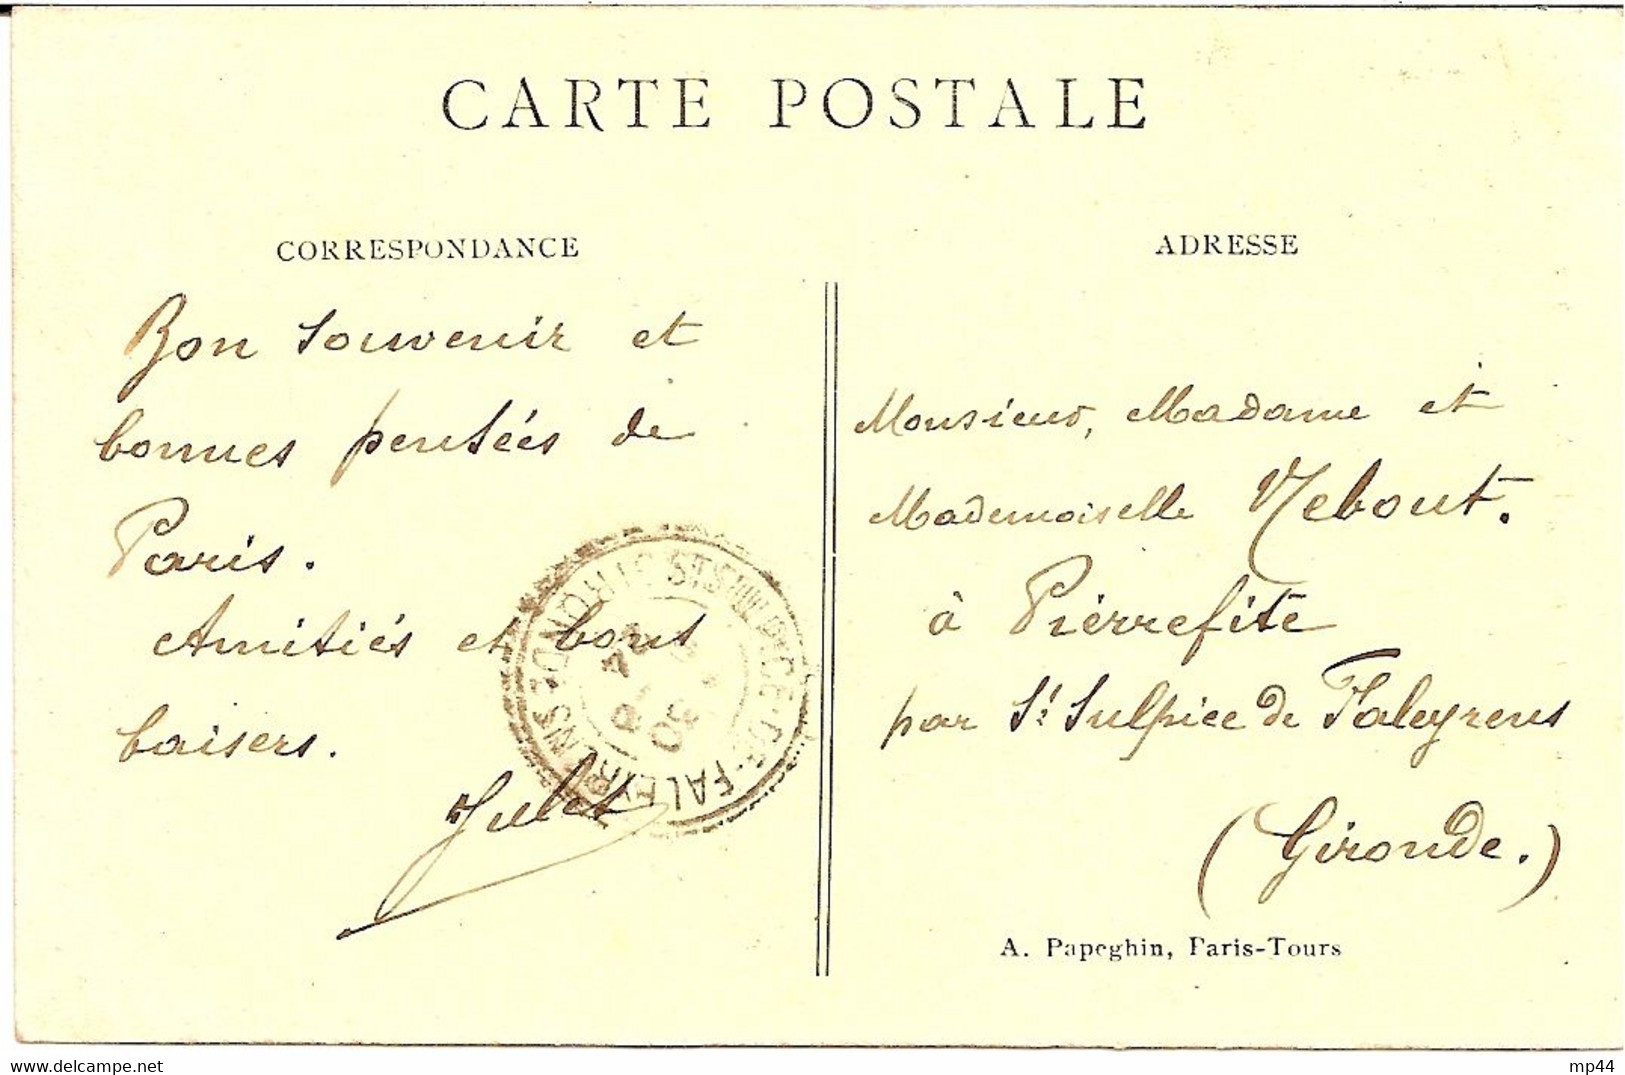 CARTE POSTALE
CORRESPONDANCE
Bon souvenir et
bonnes pensées de
Paris.
Amitiés et bons
baisers.
ADRESSE
Monsieur, Madame et
Mademoiselle Nebout.
à Pierrefite
par St Sulpice de Faleyrens
(Gironde.)
A. Papeghin, Paris-Tours
mp44